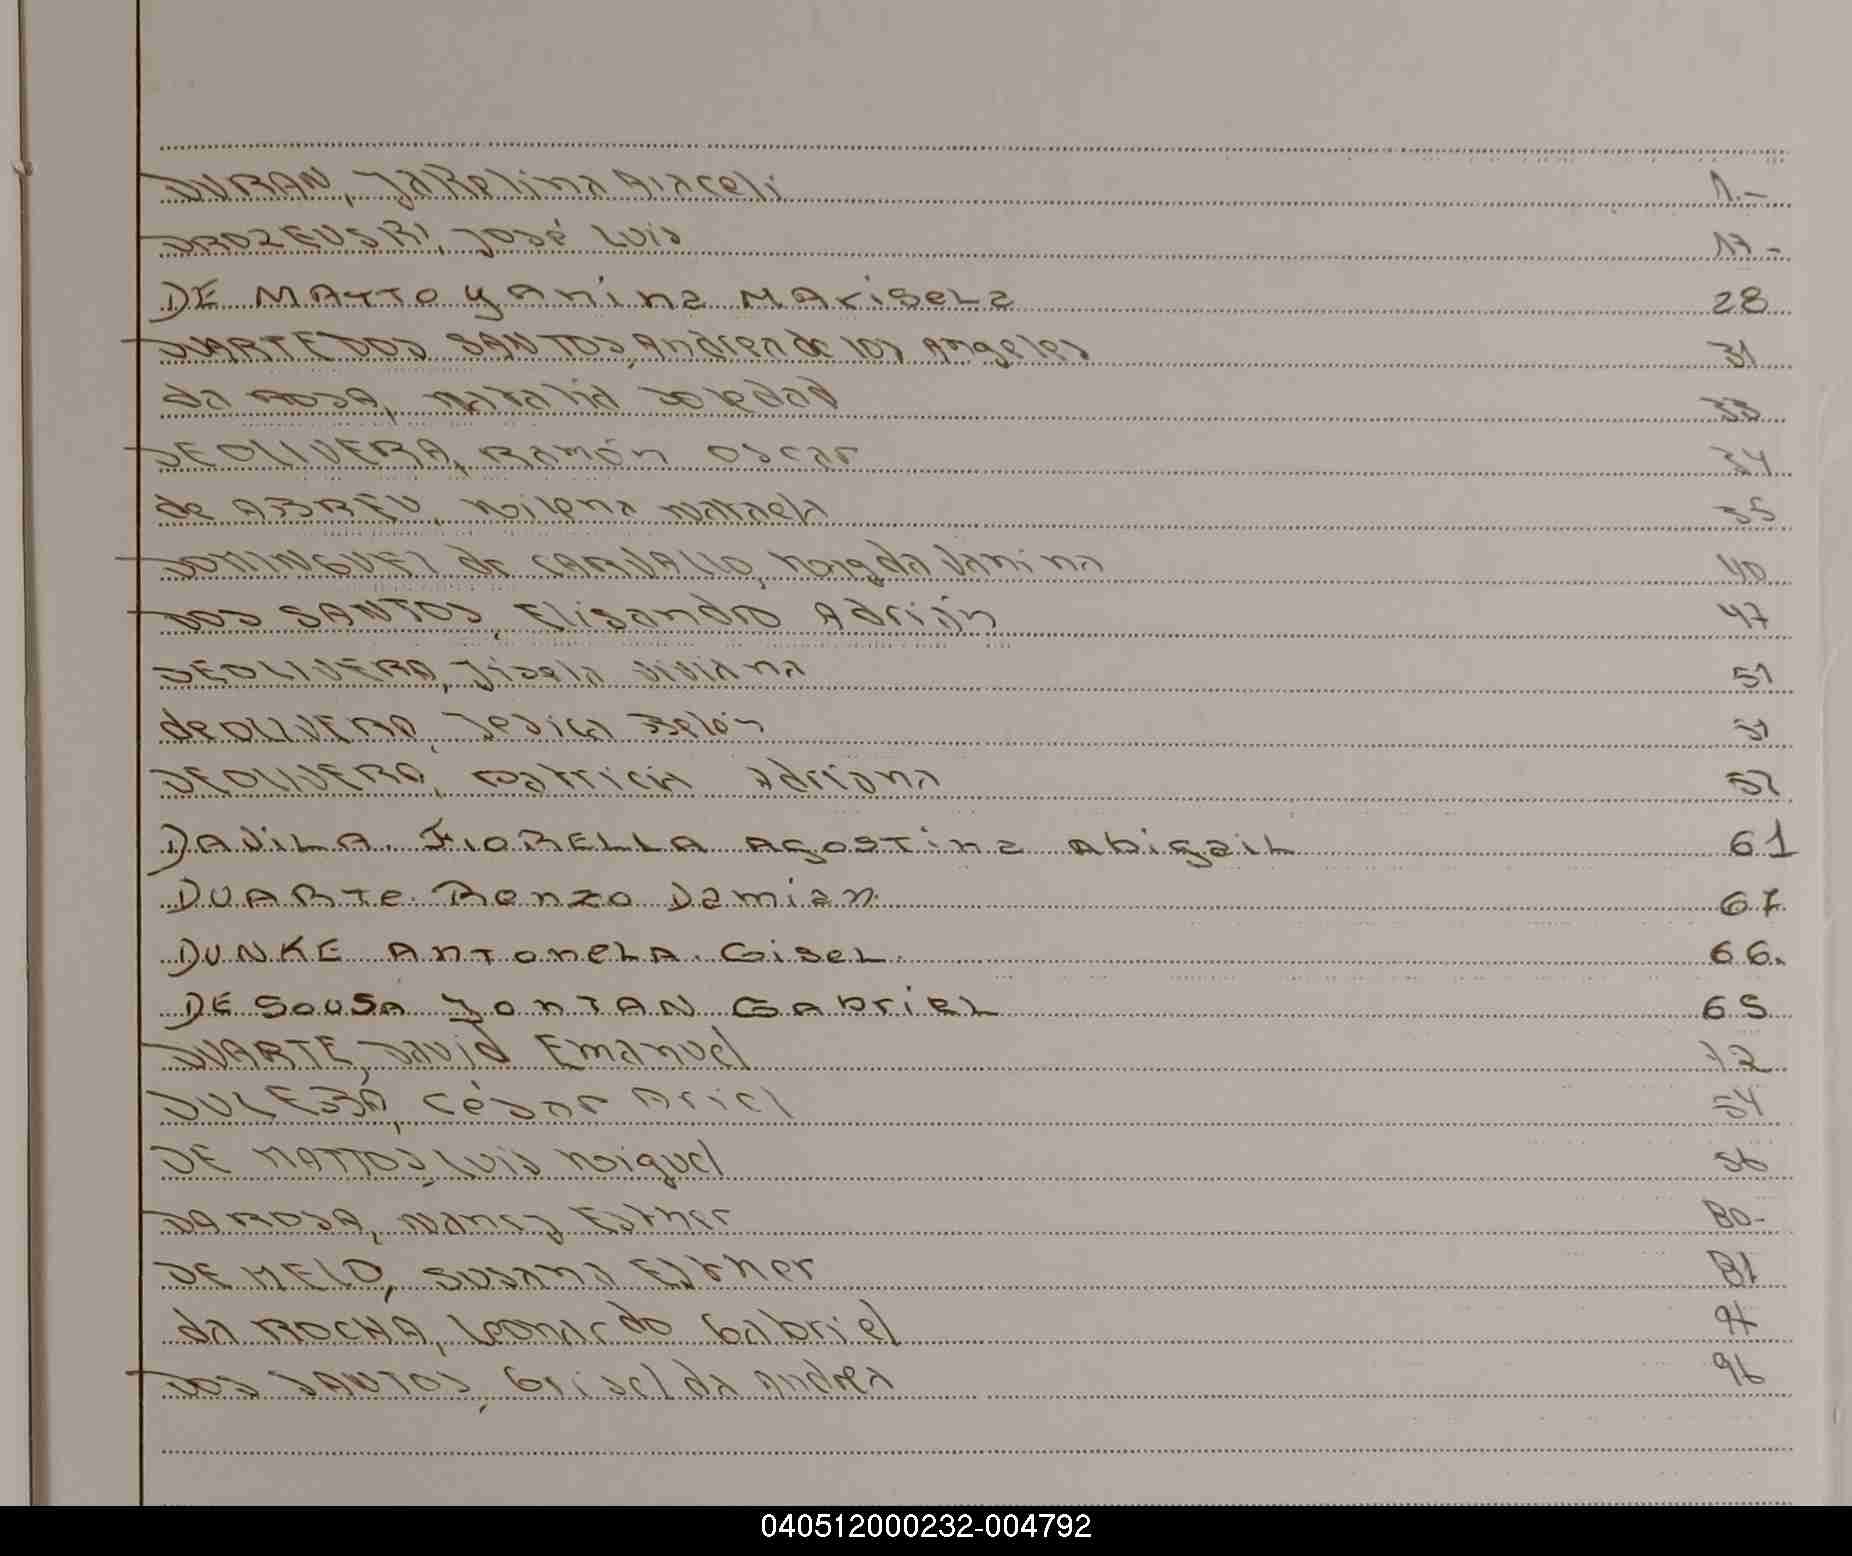 DURAN, Jakelina Araceli 1.-
DROZEUSKI, José Luis 17-
DE MATTO yAnina MAriseLa 28
DUARTE DOS SANTOS, Andrea de los Angeles 31
da ROSA, Natalia Soledad 33
DE OLIVERA, Ramón Oscar 34
de ABREU, Milena Natael 35
DOMINGUEZ de CARVALLO, Magda Vanina 40
DOS SANTOS, Elisandro Adrián 47
DE OLIVERA, Jisela Viviana 51
de OLIVERA, Jesica Belén 51
DE OLIVERA, Patricia Adriana 52
DAVILA. FIORELLA Agostina Abigail 61
DUARTe. Renzo Damian. 67
DUNKE Antonela. Gisel. 66.
DE SOUSA JonTAN GABriEL 65
DUARTE, David Emanuel 72
DULESBA, César Ariel 54
DE MATTOS, Luis Miguel 56
DA ROSA, Nancy Esther 80-
DE MELO, Susana Esther 81
da ROCHA, Leonardo Gabriel
DOS SANTOS, Griselda Andrea 96
040512000232-004792